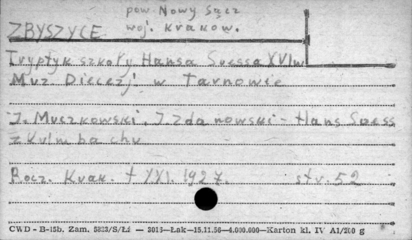 pow Nowy Sącz
ZBYSZYCE woj. Kraków.
Tryptyk szkoły Hansa Suessa XVI w
Muz. Diecezj. w Tarnowie
J. Muczkowski, J. Zdanowski - Hans Suess
z Kulmbachu
Rocz. Krak. t XXI. 1927. str. 52
CWD - B-15b. Zam. — 2015—Łak—15.11.56—4.000.000—Karton kl. IV A1/210 g